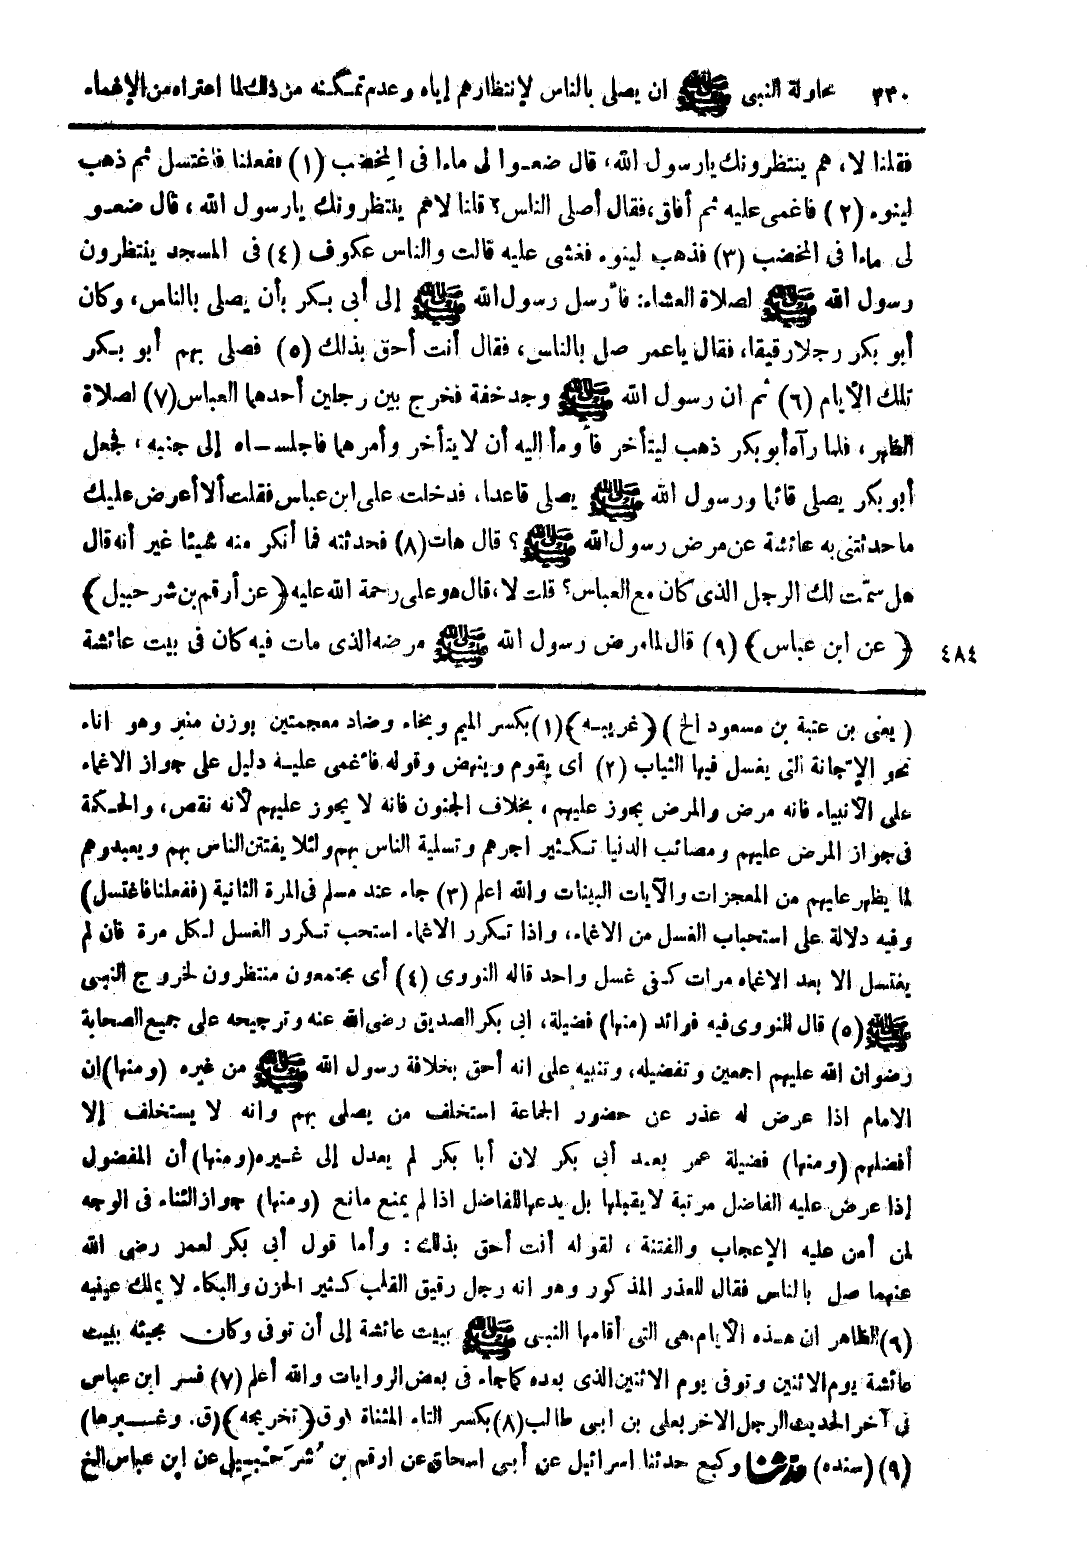 ٢٣٠ محاولة النبى ﷺ ان يصلى بالناس لإنتظارهم إياه وعدم تمكنه من ذلك لما اعتراه من الإغماء
فقلنا لا، هم ينتظرونك يارسول الله، قال ضعوا لى ماءا فى المخضب (١) ففعلنا فاغتسل ثم ذهب
لينوء (٢) فاغمى عليه ثم أفاق، فقال أصلى الناس؟ قلنا لاهم ينتظرونك يارسول الله، قال ضعوا
لى ماءا فى المخضب (٣) فذهب لينوء فغشى عليه قالت والناس عكوف (٤) فى المسجد ينتظرون
رسول الله ﷺ لصلاة العشاء: فأرسل رسول الله ﷺ إلى أبى بكر بأن يصلى بالناس، وكان
أبو بكر رجلا رقيقا، فقال ياعمر صل بالناس، فقال أنت أحق بذلك (٥) فصلى بهم أبو بكر
تلك الأيام (٦) ثم ان رسول الله ﷺ وجد خفة فخرج بين رجلين أحدهما العباس (٧) لصلاة
الظهر، فلما رآه أبو بكر ذهب ليتأخر فأومأ اليه أن لا يتأخر وأمرهما فاجلساه إلى جنبه، فجعل
أبو بكر يصلى قائما ورسول الله ﷺ يصلى قاعدا، فدخلت على ابن عباس فقلت ألا أعرض عليك
ما حدثتنى به عائشة عن مرض رسول الله ﷺ؟ قال هات (٨) فحدثته فما أنكر منه شيئا غير أنه قال
هل سمّت لك الرجل الذى كان مع العباس؟ قلت لا، قال هو على رحمة الله عليه ﴿عن أرقم بن شرحبيل﴾
﴿عن ابن عباس﴾ (٩) قال لما مرض رسول الله ﷺ مرضه الذى مات فيه كان فى بيت عائشة
٤٨٤
(يعنى بن عتبة بن مسعود الخ) ﴿غريبه﴾ (١) بكسر الميم وبخاء وضاد معجمتين بوزن منبر وهو اناء
نحو الإجانة التى يغسل فيها الثياب (٢) اى يقوم وينهض وقوله فأغمى عليه دليل على جواز الاغماء
على الأنبياء فانه مرض والمرض يجوز عليهم، بخلاف الجنون فانه لا يجوز عليهم لأنه نقص، والحكمة
فى جواز المرض عليهم ومصائب الدنيا تكثير اجرهم وتسلية الناس بهم ولئلا يفتتن الناس بهم ويعبدوهم
لما يظهر عليهم من المعجزات والآيات البينات والله اعلم (٣) جاء عند مسلم فى المرة الثانية (ففعلنا فاغتسل)
وفيه دلالة على استحباب الغسل من الاغماء، واذا تكرر الاغماء استحب تكرر الغسل لكل مرة فان لم
يغتسل الا بعد الاغماء مرات كفى غسل واحد قاله النووى (٤) أى مجتمعون منتظرون لخروج النبى
ﷺ (٥) قال النووى فيه فوائد (منها) فضيلة، ابى بكر الصديق رضى الله عنه وترجيحه على جميع الصحابة
رضوان الله عليهم اجمعين وتفضيله، وتنبيه على انه أحق بخلافة رسول الله ﷺ من غيره (ومنها) ان
الامام اذا عرض له عذر عن حضور الجماعة استخلف من يصلى بهم وانه لا يستخلف إلا
أفضلهم (ومنها) فضيلة عمر بعد أبى بكر لان أبا بكر لم يعدل إلى غيره (ومنها) أن المفضول
إذا عرض عليه الفاضل مرتبة لا يقبلها بل يدعها للفاضل اذا لم يمنع مانع (ومنها) جواز الثناء فى الوجه
لمن أمن عليه الإعجاب والفتنة، لقوله أنت أحق بذلك: وأما قول أبى بكر لعمر رضى الله
عنهما صل بالناس فقال للعذر المذكور وهو انه رجل رقيق القلب كثير الحزن والبكاء لا يملك عينيه
(٦) الظاهر ان هذه الأيام هى التى أقامها النبى ﷺ ببيت عائشة إلى أن توفى وكان مجيئه بيت
عائشة يوم الاثنين وتوفى يوم الاثنين الذى بعده كما جاء فى بعض الروايات والله أعلم (٧) فسر ابن عباس
فى آخر الحديث الرجل الاخر بعلى بن ابى طالب (٨) بكسر التاء المثناة فوق ﴿تخريجه﴾ (ق. وغيرها)
(٩) (سنده) حدثنا وكيع حدثنا اسرائيل عن أبى اسحاق عن ارقم بن شرحبيل عن ابن عباس الخ